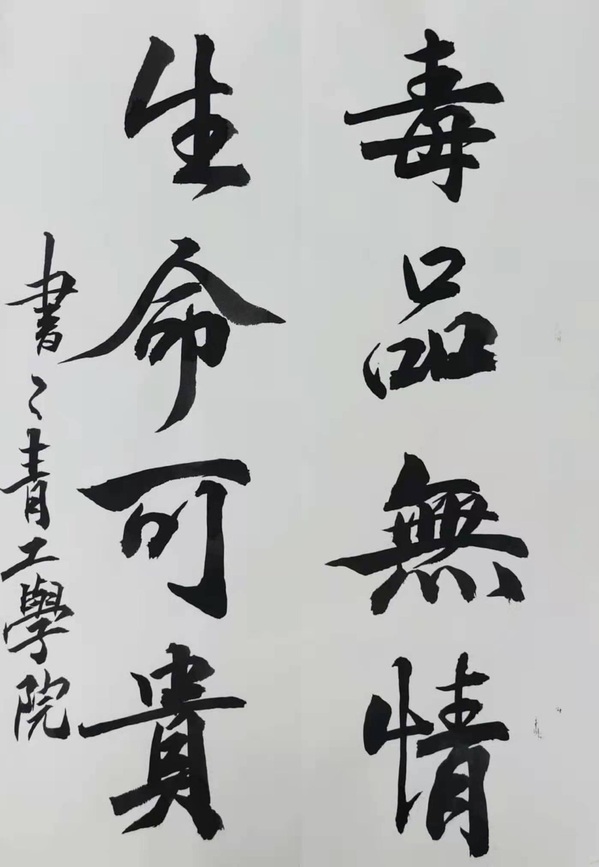 毒品無情
生命可貴
書〻青工學院